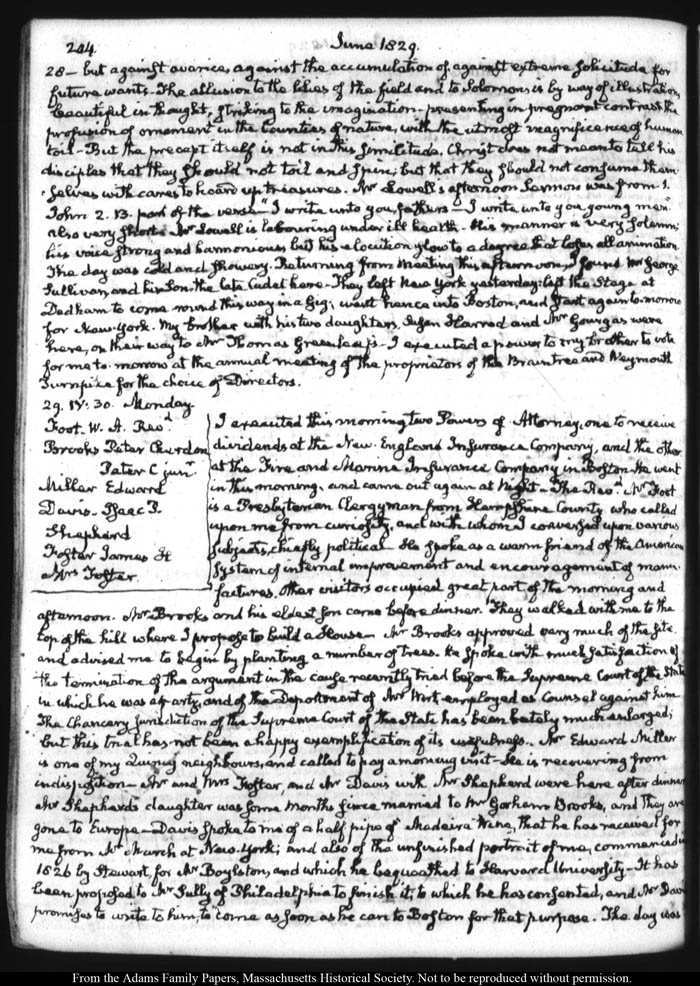 244. June 1829.
28 — but against avarice, against the accumulation of, against extreme solicitude for
future wants. The allusion to the lilies of the field and to Solomon is by way of illustration,
beautiful in thought, striking to the imagination — presenting in pregnant contrast the
profusion of ornament in the bounties of nature, with the utmost magnificence of human
toil — But the precept itself is not in this similitude. Christ does not mean to tell his
disciples that they should not toil and spin; but that they should not consume them-
-selves with cares to hoard up treasures. Mr Lowell's afternoon Sermon was from 1.
John 2. 13. part of the verse "I write unto you, fathers — I write unto you young men"
also very short. Mr Lowell is labouring under ill health. His manner is very solemn;
his voice strong and harmonious but his elocution slow to a degree that loses all animation.
The day was cold and showery. Returning from Meeting this afternoon, I found Mr George
Sullivan, and his Son, the late Cadet here. They left New York yesterday; left the Stage at
Dedham to come round this way in a Gig; went hence into Boston, and start again to-morrow
for New-York. My brother with his two daughters, Susan Harrod and Mr Gourgas were
here, on their way to Mr Thomas Greenleaf's. I executed a power to my brother to vote
for me to-morrow at the annual meeting of the proprietors of the Braintree and Weymouth
Turnpike for the choice of Directors.
29. IV: 30. Monday
Foot. W. A. Revd
Brooks Peter Chardon
Peter C junr
Miller Edward
Davis. Isaac P.
Shepherd
Foster James H
Mrs Foster.
I executed this morning two Powers of Attorney, one to receive
dividends at the New-England Insurance Company, and the other
at the Fire and Marine Insurance Company in Boston. He went
in this morning, and came out again at Night — The Revd Mr Foot
is a Presbyterian Clergyman from Hampshire County who called
upon me from curiosity, and with whom I conversed upon various
subjects, chiefly political. He spoke as a warm friend of the American
System of internal improvement and encouragement of manu-
factures. Other visitors occupied great part of the morning and
afternoon. Mr Brooks and his eldest son came before dinner. They walked with me to the
top of the hill where I propose to build a House — Mr Brooks approved very much of the site
and advised me to begin by planting a number of trees. He spoke with much satisfaction of
the termination of the argument in the cause recently tried before the Supreme Court of the State
in which he was a party, and of the Deportment of Mr Wirt employed as Counsel against him
The Chancery Jurisdiction of the Supreme Court of the State has been lately much enlarged;
but this trial has not been a happy exemplification of its usefulness. Mr Edward Miller
is one of my Quincy neighbours, and called to pay a morning visit — He is recovering from
indisposition — Mr and Mrs Foster, and Mr Davis with Mr Shepherd were here after dinner
Mr Shepherd's daughter was some months since married to Mr Gorham Brooks, and They are
gone to Europe — Davis spoke to me of a half pipe of Madeira Wine, that he has received for
me from Mr March at New-York; and also of the unfinished portrait of me, commenced in
1826 by Stewart, for Mr Boylston, and which he bequeathed to Harvard University — It has
been proposed to Mr Sully of Philadelphia to finish it, to which he has consented, and Mr Davis
promises to write to him, to come as soon as he can to Boston for that purpose. The day was
From the Adams Family Papers, Massachusetts Historical Society. Not to be reproduced without permission.